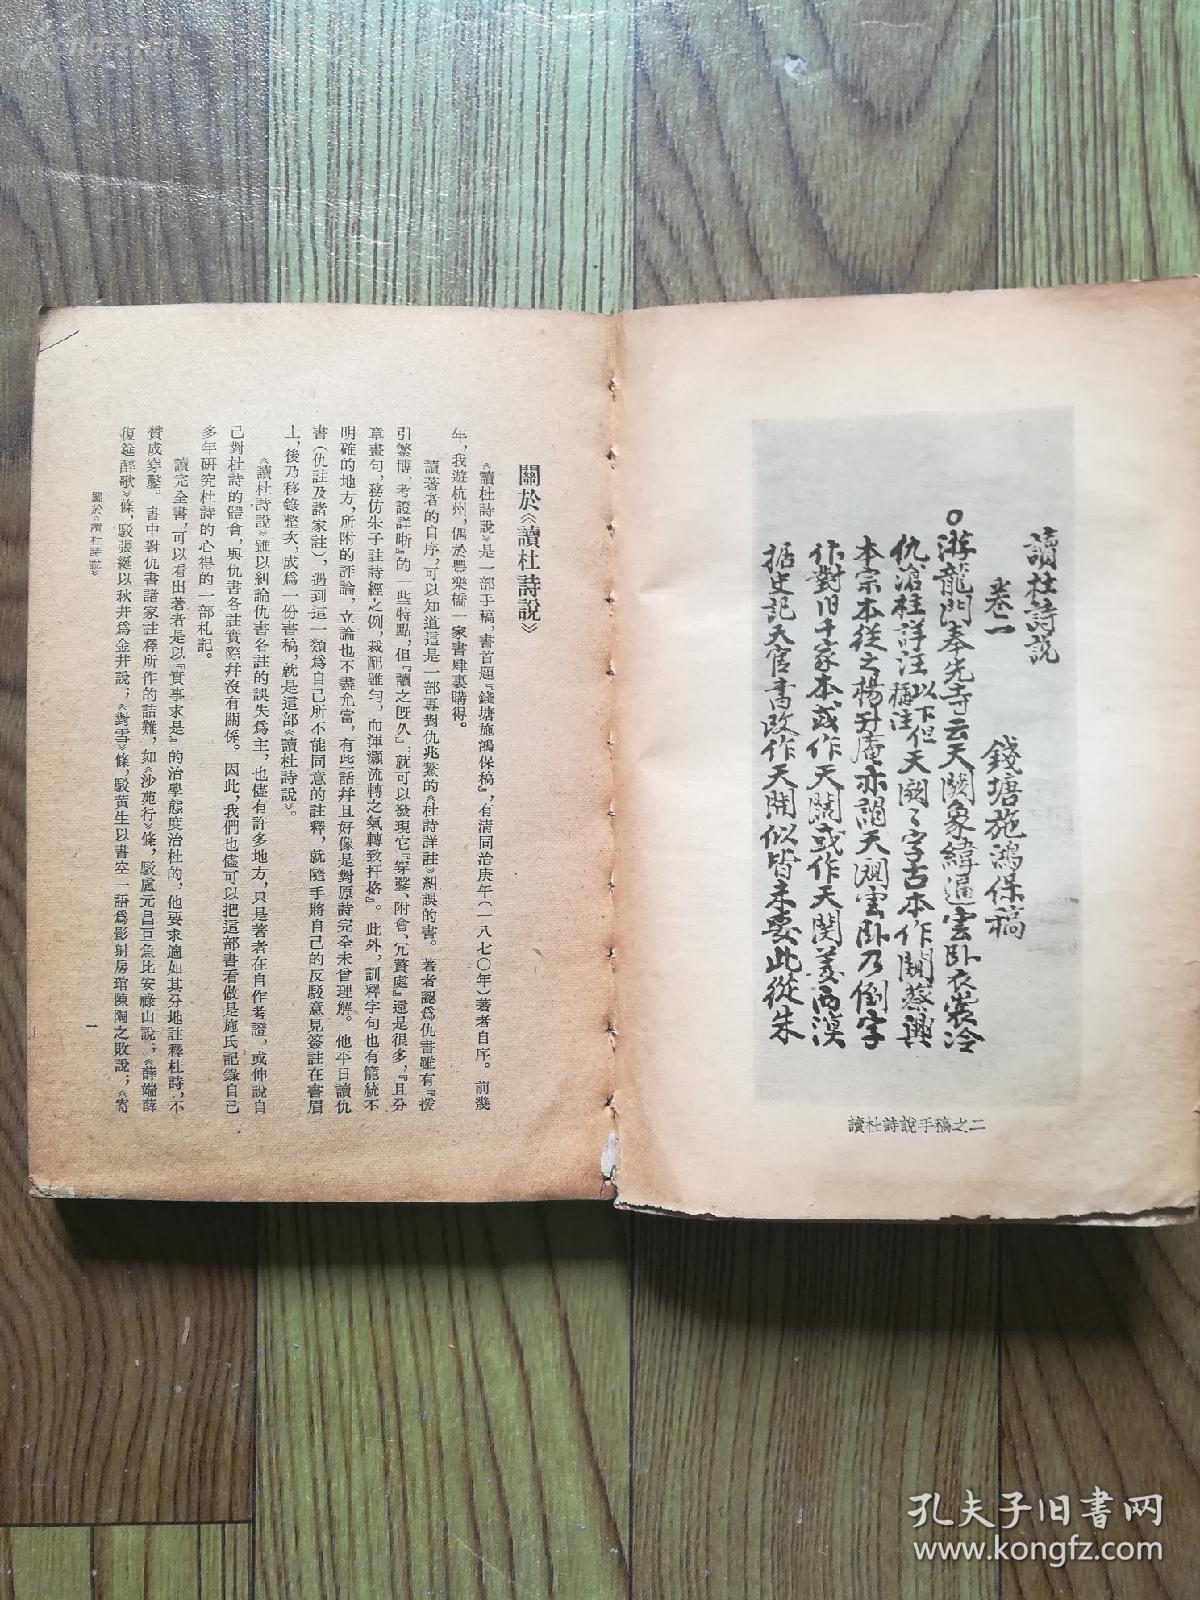 讀杜詩說
卷一
錢塘施鴻保稿
○游龍門奉先寺云天闕象緯逼雲臥衣裳冷
仇滄柱詳注以下但稱注天闕二字古本作闚蔡興
本宗本從之楊升庵亦謂天闚雲臥乃倒字
作對旧千家本或作天關或作天闕姜西溟
据史記天官書改作天開似皆未妥此從朱
讀杜詩說手稿之二
關於《讀杜詩說》
《讀杜詩說》是一部手稿,書首題『錢塘施鴻保稿』,有清同治庚午(一八七〇年)著者自序。前幾
年,我遊杭州,偶於豐樂橋一家書肆裏購得。
讀著者的自序,可以知道這是一部專對仇兆鰲的《杜詩詳註》糾誤的書。著者認爲仇書雖有『援
引繁博,考證詳晰』的一些特點,但『讀之旣久』,就可以發現它『穿鑿、附會、冗贅處』還是很多,『且分
章畫句,務仿朱子註詩經之例,裁配雖勻,而渾灝流轉之氣轉致扞格』。此外,訓釋字句也有籠統不
明確的地方,所附的評論,立論也不盡允當,有些話幷且好像是對原詩完全未曾理解。他平日讀仇
書(仇註及諸家註),遇到這一類爲自己所不能同意的註釋,就隨手將自己的反駁意見簽註在書眉
上,後乃移錄整次,成爲一份書稿,就是這部《讀杜詩說》。
《讀杜詩說》雖以糾論仇書各註的誤失爲主,也儘有許多地方,只是著者在自作考證,或伸說自
己對杜詩的體會,與仇書各註實際幷沒有關係。因此,我們也儘可以把這部書看做是施氏記錄自己
多年研究杜詩的心得的一部札記。
讀完全書,可以看出著者是以『實事求是』的治學態度治杜的,他要求適如其分地註釋杜詩,不
贊成穿鑿。書中對仇書諸家註釋所作的詰難,如《沙苑行》條,駁盧元昌巨魚比安祿山說;《薛端薛
復筵醉歌》條,駁張綖以秋井爲金井說;《對雪》條,駁黃生以書空一語爲影射房琯陳陶之敗說;《寄
關於《讀杜詩說》
一
孔夫子旧书网
www.kongfz.com